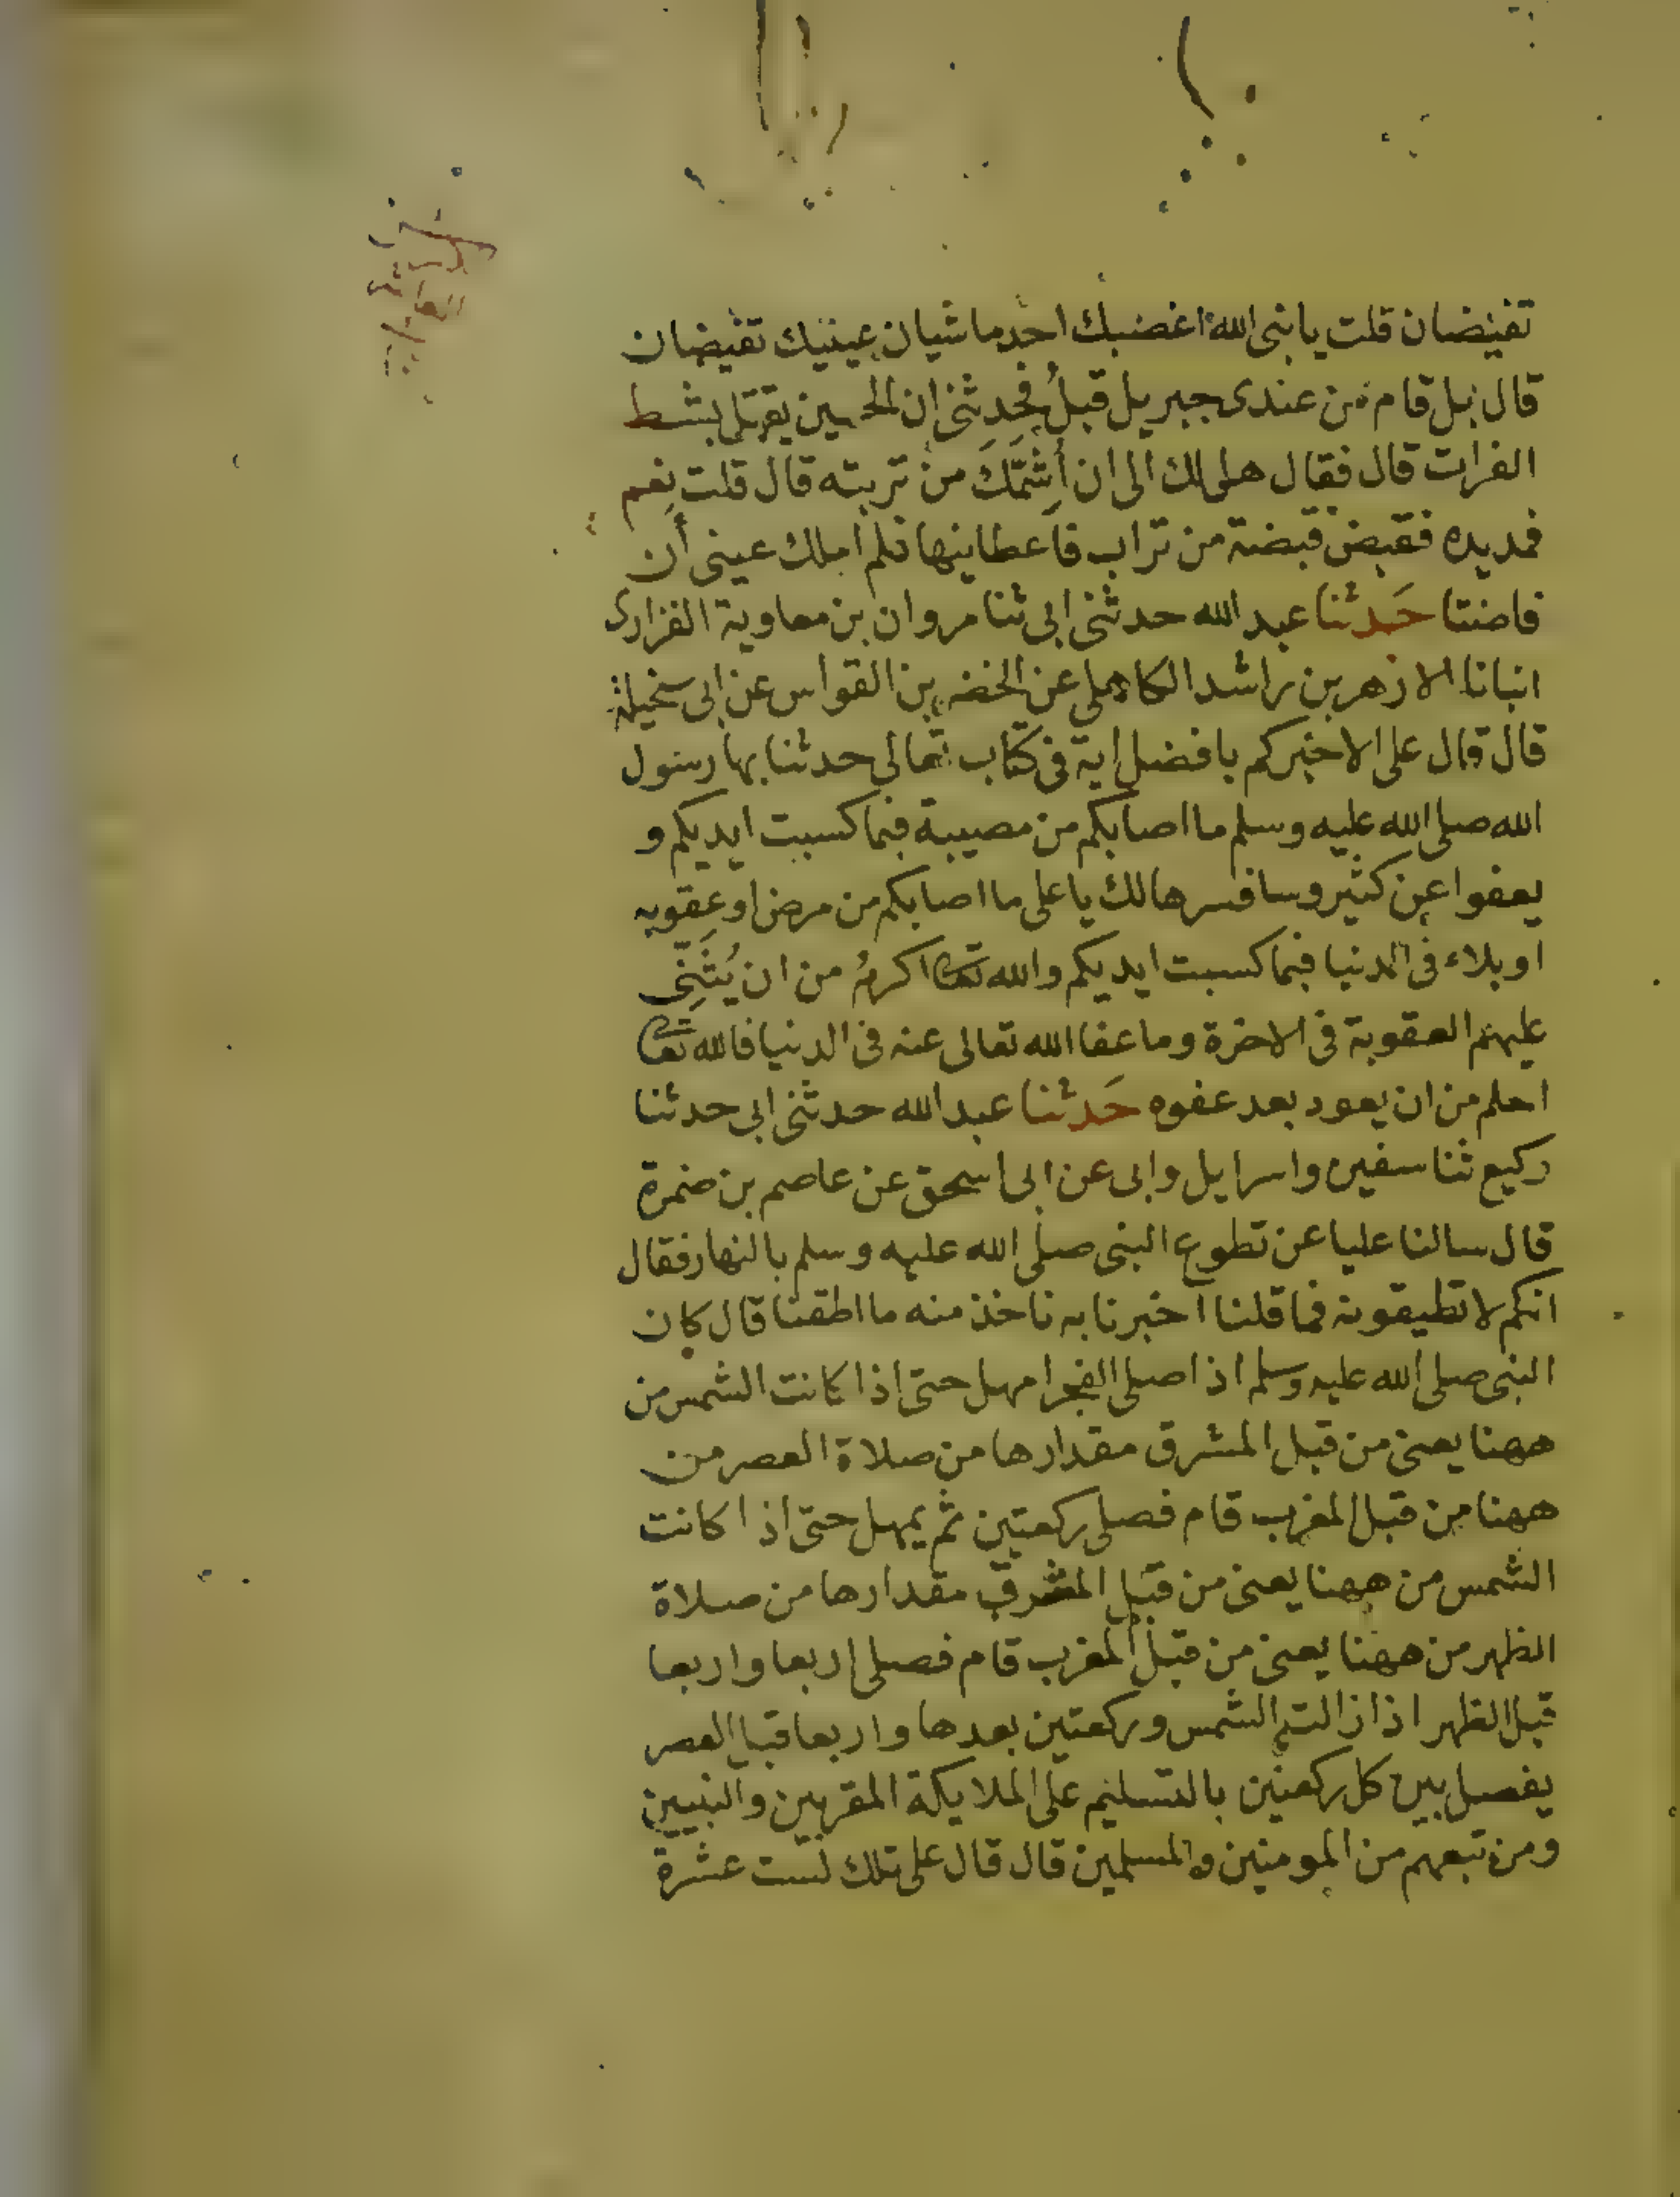 تفيضان قلت يا نبى الله اغضبك احد ما شيان عينيك تفيضان
قال بل قام من عندى جبريل قبلُ فحدثنى ان الحسين يقتل بشط
الفرات قال فقال هل لك الى ان أُشِمَّكَ من تربته قال قلت نعم
فمد يده فقبض قبضة من تراب فاعطانيها فلم املك عينى أن
فاضتا حَدثنا عبد الله حدثنى ابى ثنا مروان بن معاوية الفزارى
انبانا الازهر بن راشد الكاهلى عن الخضر بن القواس عن ابى سخيلة
قال قال على الا خبركم بافضل اية فى كتاب تعالى حدثنا بها رسول
الله صلى الله عليه وسلم ما اصابكم من مصيبة فبما كسبت ايديكم و
يعفوا عن كثير وسافسرها لك يا على ما اصابكم من مرض او عقوبه
او بلاء فى الدنيا فبما كسبت ايديكم والله تعا اكرمُ من ان يُثَنِّى
عليهم العقوبة فى الاخرة وما عفا الله تعالى عنه فى الدنيا فالله تعا
احلم من ان يعود بعد عفوه حَدثنا عبد الله حدثنى ابى حدثنا
وكيع ثنا سفين واسرايل وابى عن ابى اسحق عن عاصم بن ضمرة
قال سالنا عليا عن تطوع النبى صلى الله عليه وسلم بالنهار فقال
انكم لا تطيقونه فما قلنا اخبرنا به ناخذ منه ما اطقنا قال كان
النبى صلى الله عليه وسلم اذا صلى الفجر امهل حتى اذا كانت الشمس من
ههنا يعنى من قبل المشرق مقدارها من صلاة العصر من
ههنا من قبل المغرب قام فصلى ركعتين ثم يمهل حتى اذا كانت
الشمس من ههنا يعنى من قبل المشرق مقدارها من صلاة
الظهر من ههنا يعنى من قبل المغرب قام فصلى اربعا واربعا
قبل الظهر اذا زالت الشمس وركعتين بعدها واربعا قبل العصر
يفصل بين كل ركعتين بالتسليم على الملايكة المقربين والنبيين
ومن تبعهم من المومنين والمسلمين قال قال على تلك ست عشرة